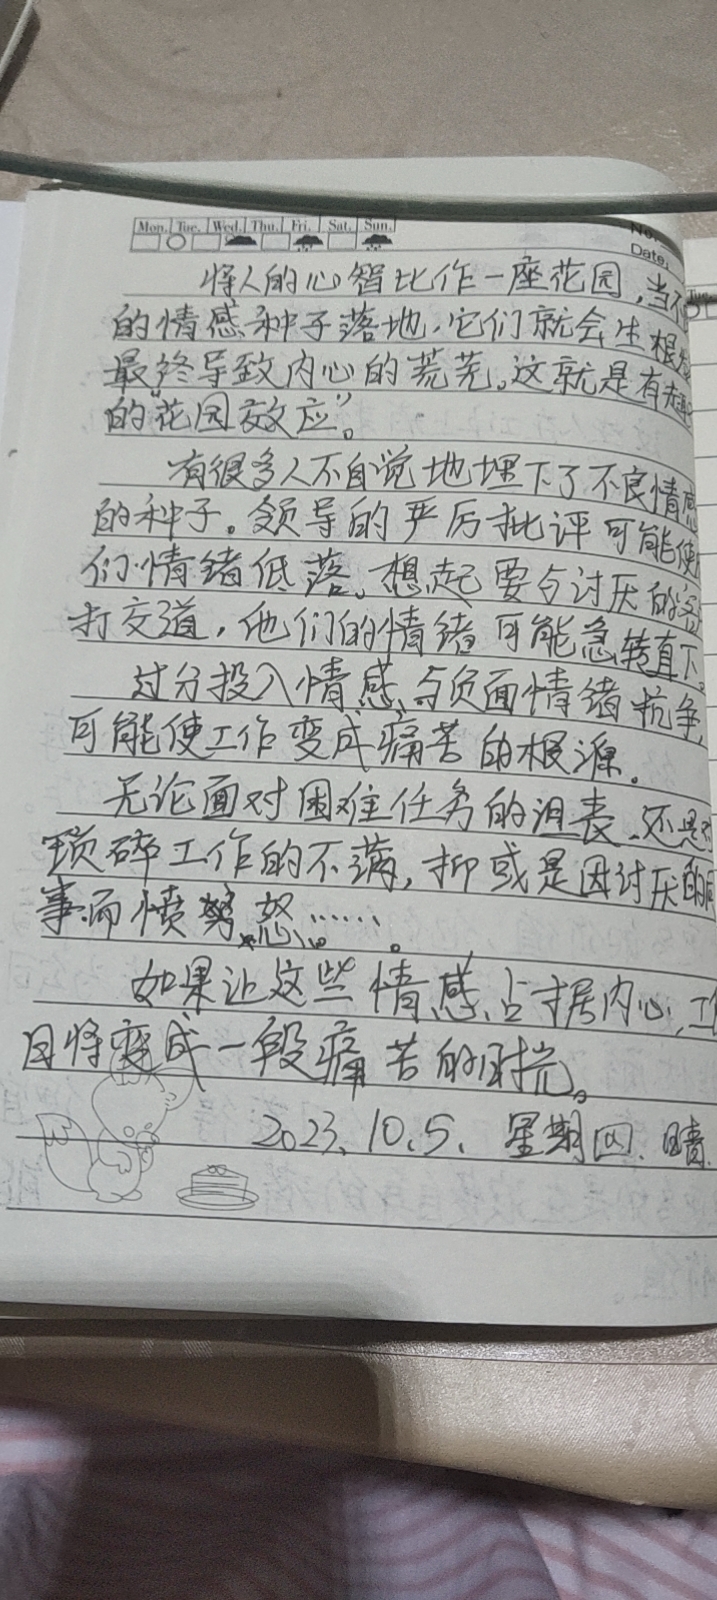 Mon. Tue. Wed. Thu. Fri. Sat. Sun.
No.
Date:
将人的心智比作一座花园,当不
的情感种子落地,它们就会生根
最终导致内心的荒芜。这就是有趣
的“花园效应”。
有很多人不自觉地埋下了不良情感
的种子。领导的严厉批评可能使
们情绪低落。想起要与讨厌的客
打交道,他们的情绪可能急转直下。
过分投入情感、与负面情绪抗争,
可能使工作变成痛苦的根源。
无论面对困难任务的沮丧、还是对
琐碎工作的不满,抑或是因讨厌的同
事而愤怒……。
如果让这些情感占据内心,工
日将变成一段痛苦的时光。
2023、10、5、星期四、晴、